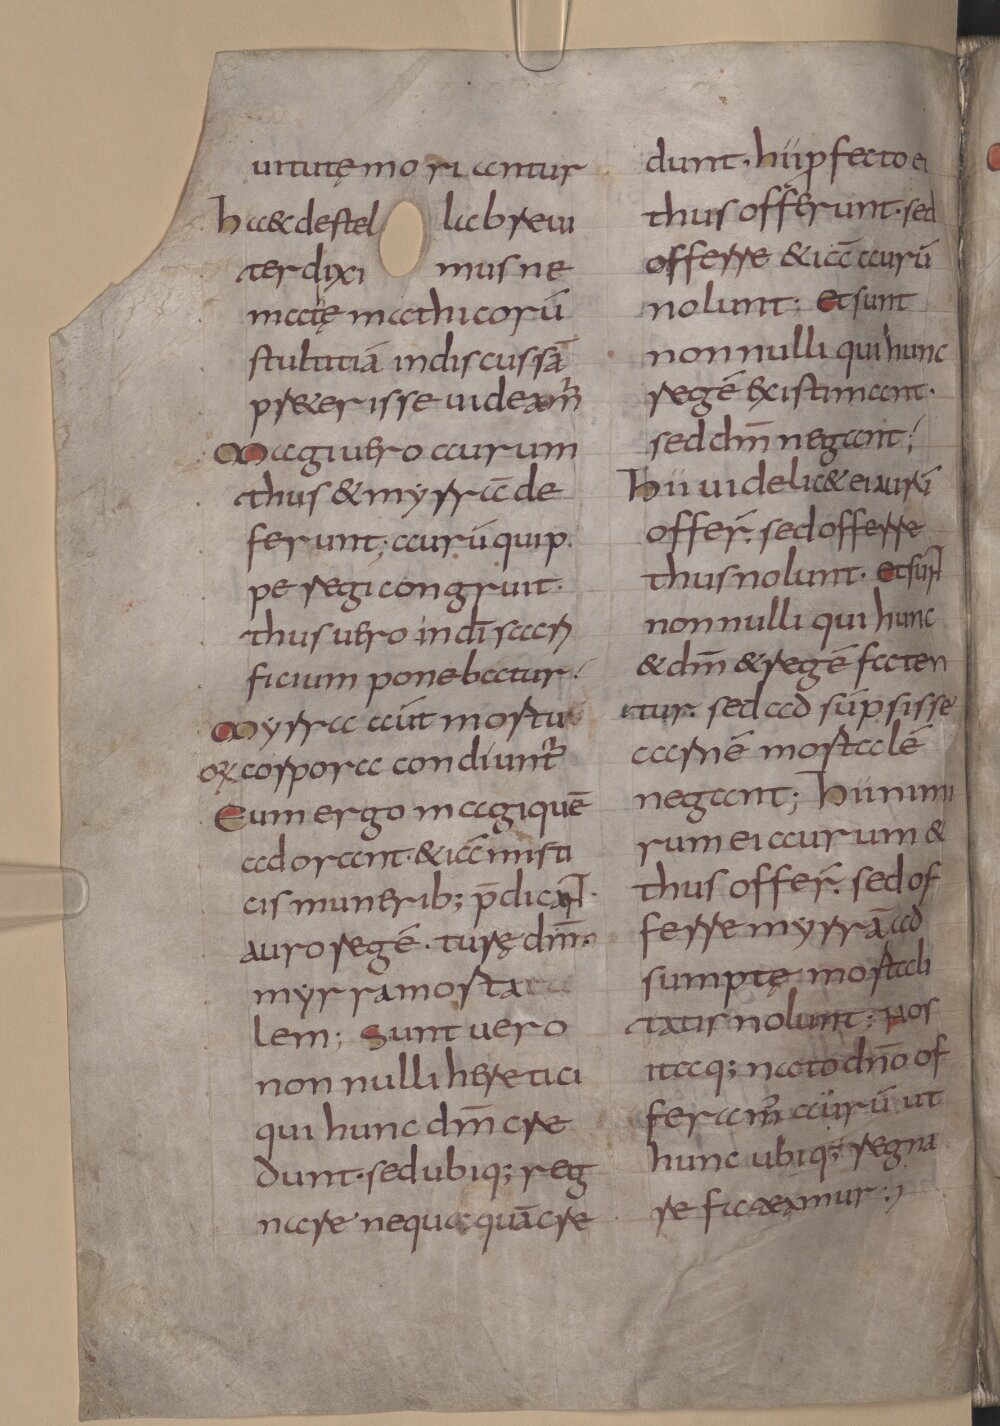 uirtutę moriantur
haec & de stella breui
ter diximus ne
matęmathicorū
stultitiā indiscussā
p̄terisse uideam̄r
Magi uero aurum
thus & myrrā de
ferunt; aurū quip
pe regi congruit.
thus uero in dī sacri
ficium ponebatur.
Myrra aūt mortu
oꝝ corpora condiunt̄r
Eum ergo magi quē
adorant. & iā misti
cis munerib; p̄dicant.
auro regē. turę dm̄.
myrra morta
lem; Sunt uero
non nulli heretici
qui hunc dm̄ cre
dunt. sed ubiq; reg
nare nequaquā cre
dunt. hii pfecto ei
thus offerunt. sed
offerre & iā aurū
nolunt; et sunt
non nulli qui hunc
regē existimant.
sed dm̄ negant;
Hii uidelic& ei aurū
offer̄. sed offerre
thus nolunt. et sunt
non nulli qui hunc
& dm̄ & regē faten
tur. sed ad sūpsisse
carnē mortalē
negant; Hii nimi
rum ei aurum &
thus offer̄. sed of
ferre myrrā ad
sumptę mortali
tatis nolunt; nos
itaq; nato dn̄o of
feram̄r aurū ut
hunc ubiq; regna
re fateamur;